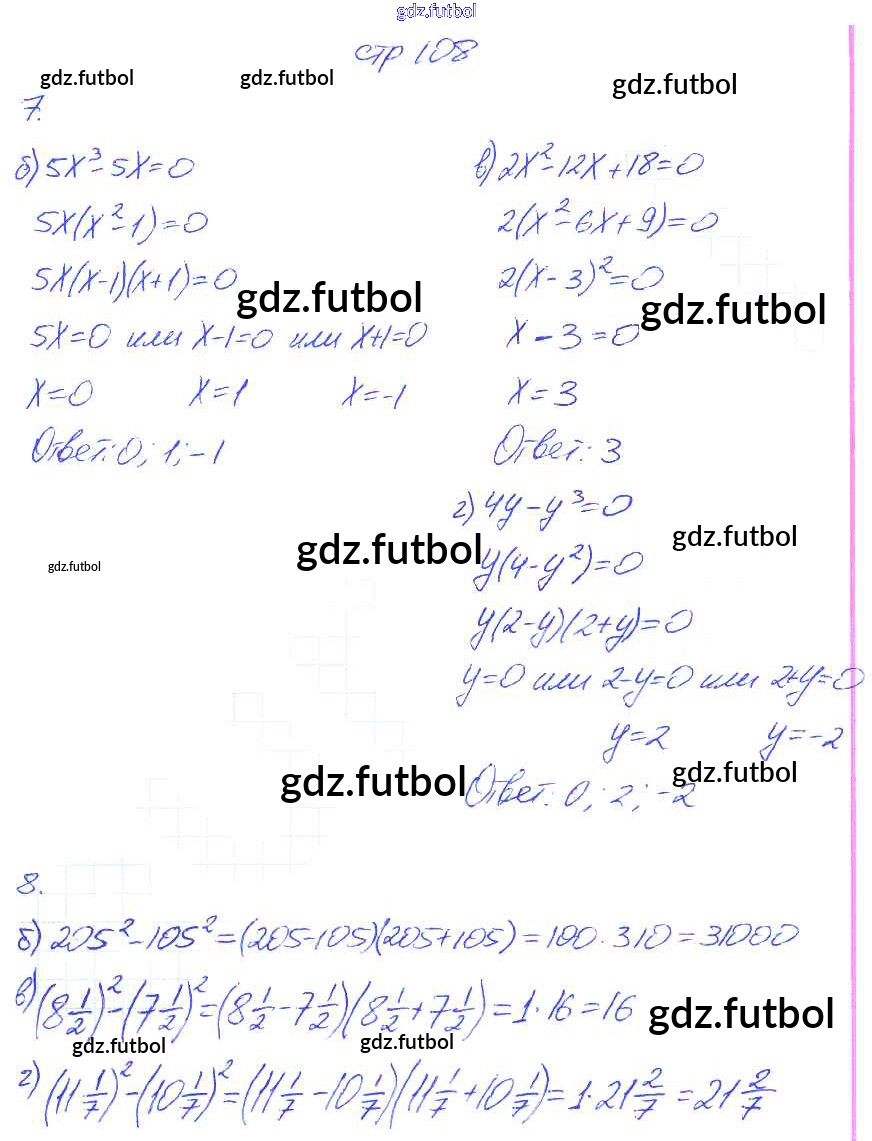 gdz.futbol
стр 108
gdz.futbol gdz.futbol gdz.futbol
7.
б) 5x³-5x=0
5x(x²-1)=0
5x(x-1)(x+1)=0
gdz.futbol
5x=0 или x-1=0 или x+1=0
x=0 x=1 x=-1
Ответ: 0; 1; -1
в) 2x²-12x+18=0
2(x²-6x+9)=0
2(x-3)²=0
gdz.futbol
x-3=0
x=3
Ответ: 3
г) 4y-y³=0
gdz.futbol
gdz.futbol
y(4-y²)=0
gdz.futbol
y(2-y)(2+y)=0
y=0 или 2-y=0 или 2+y=0
y=2 y=-2
gdz.futbol
gdz.futbol
Ответ: 0; 2; -2
8.
б) 205²-105²=(205-105)(205+105)=100·310=31000
в) (8 1/2)²-(7 1/2)²=(8 1/2-7 1/2)(8 1/2+7 1/2)=1·16=16
gdz.futbol
gdz.futbol gdz.futbol
г) (11 1/7)²-(10 1/7)²=(11 1/7-10 1/7)(11 1/7+10 1/7)=1·21 2/7=21 2/7